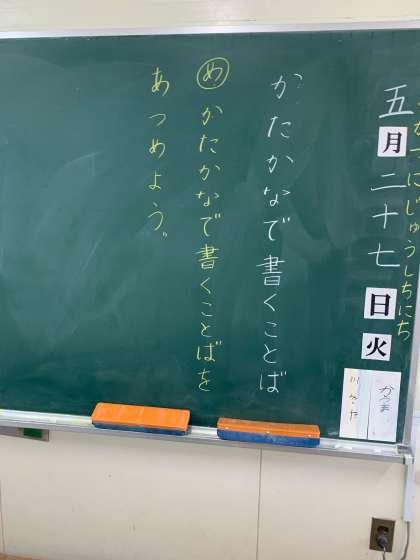 五月二十七日火
がつにじゅうしちにち
かたかなで書くことば
めかたかなで書くことばを
あつめよう。